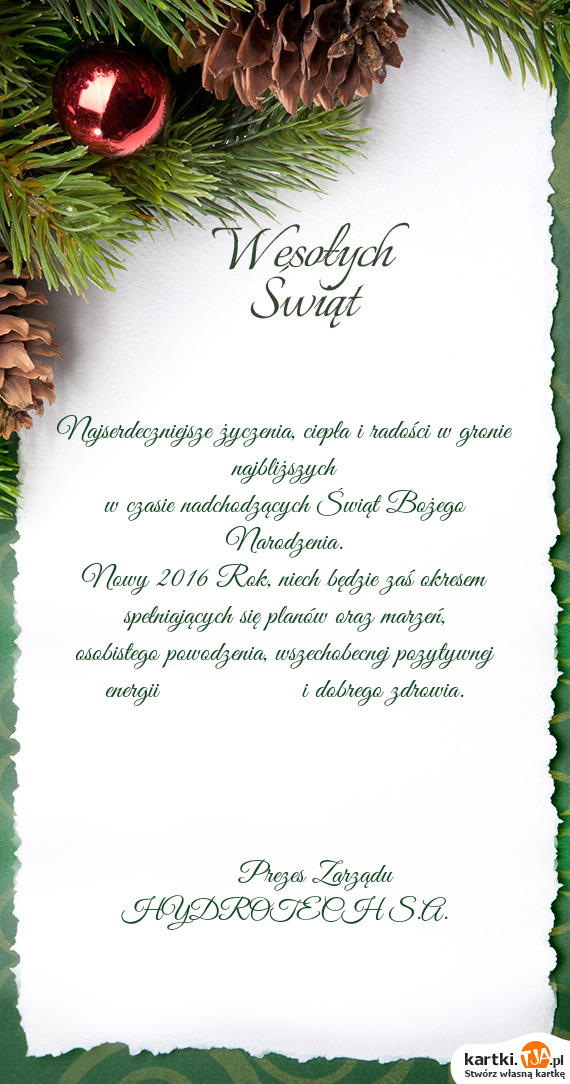 Wesołych
Świąt
Najserdeczniejsze życzenia, ciepła i radości w gronie
najbliższych
w czasie nadchodzących Świąt Bożego
Narodzenia.
Nowy 2016 Rok, niech będzie zaś okresem
spełniających się planów oraz marzeń,
osobistego powodzenia, wszechobecnej pozytywnej
energii i dobrego zdrowia.
Prezes Zarządu
HYDROTECH S.A.
kartki.TJA.pl
Stwórz własną kartkę